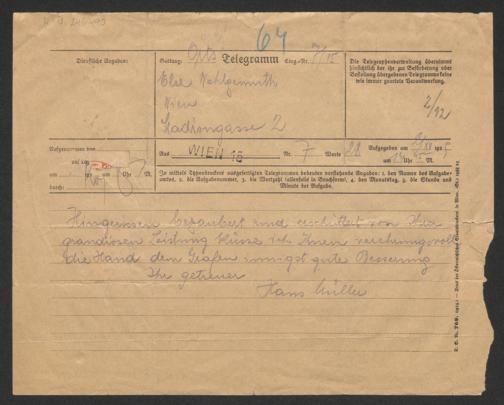 64
Dienstliche Angaben:
Gattung: Orts Telegramm Eing.-Nr. 7/15
Die Telegraphenverwaltung übernimmt
hinsichtlich der ihr zur Beförderung oder
Bestellung übergebenen Telegramme keine
wie immer geartete Verantwortung.
Else Wohlgemuth
Wien
Ladrongasse 2
2/92
Aufgenommen von
auf Ltg.
um Uhr M.
durch:
Aus WIEN 15 Nr. 7 Worte 22 Aufgegeben am
um Uhr M.
Je mittels Typendruckers ausgefertigten Telegrammen bedeuten verkürzte Angaben: 1. den Namen des Aufgabe-
amtes, 2. die Aufgabenummer, 3. die Wortzahl (allenfalls in Bruchform), 4. den Monatstag, 5. die Stunde und
Minute der Aufgabe.
Hingerissen bezaubert und erschüttert von Ihrer
grandiosen Leistung küsse ich Ihnen verehrungsvoll
die Hand dem Grafen innigst gute Besserung
Ihr getreuer
Hans Müller